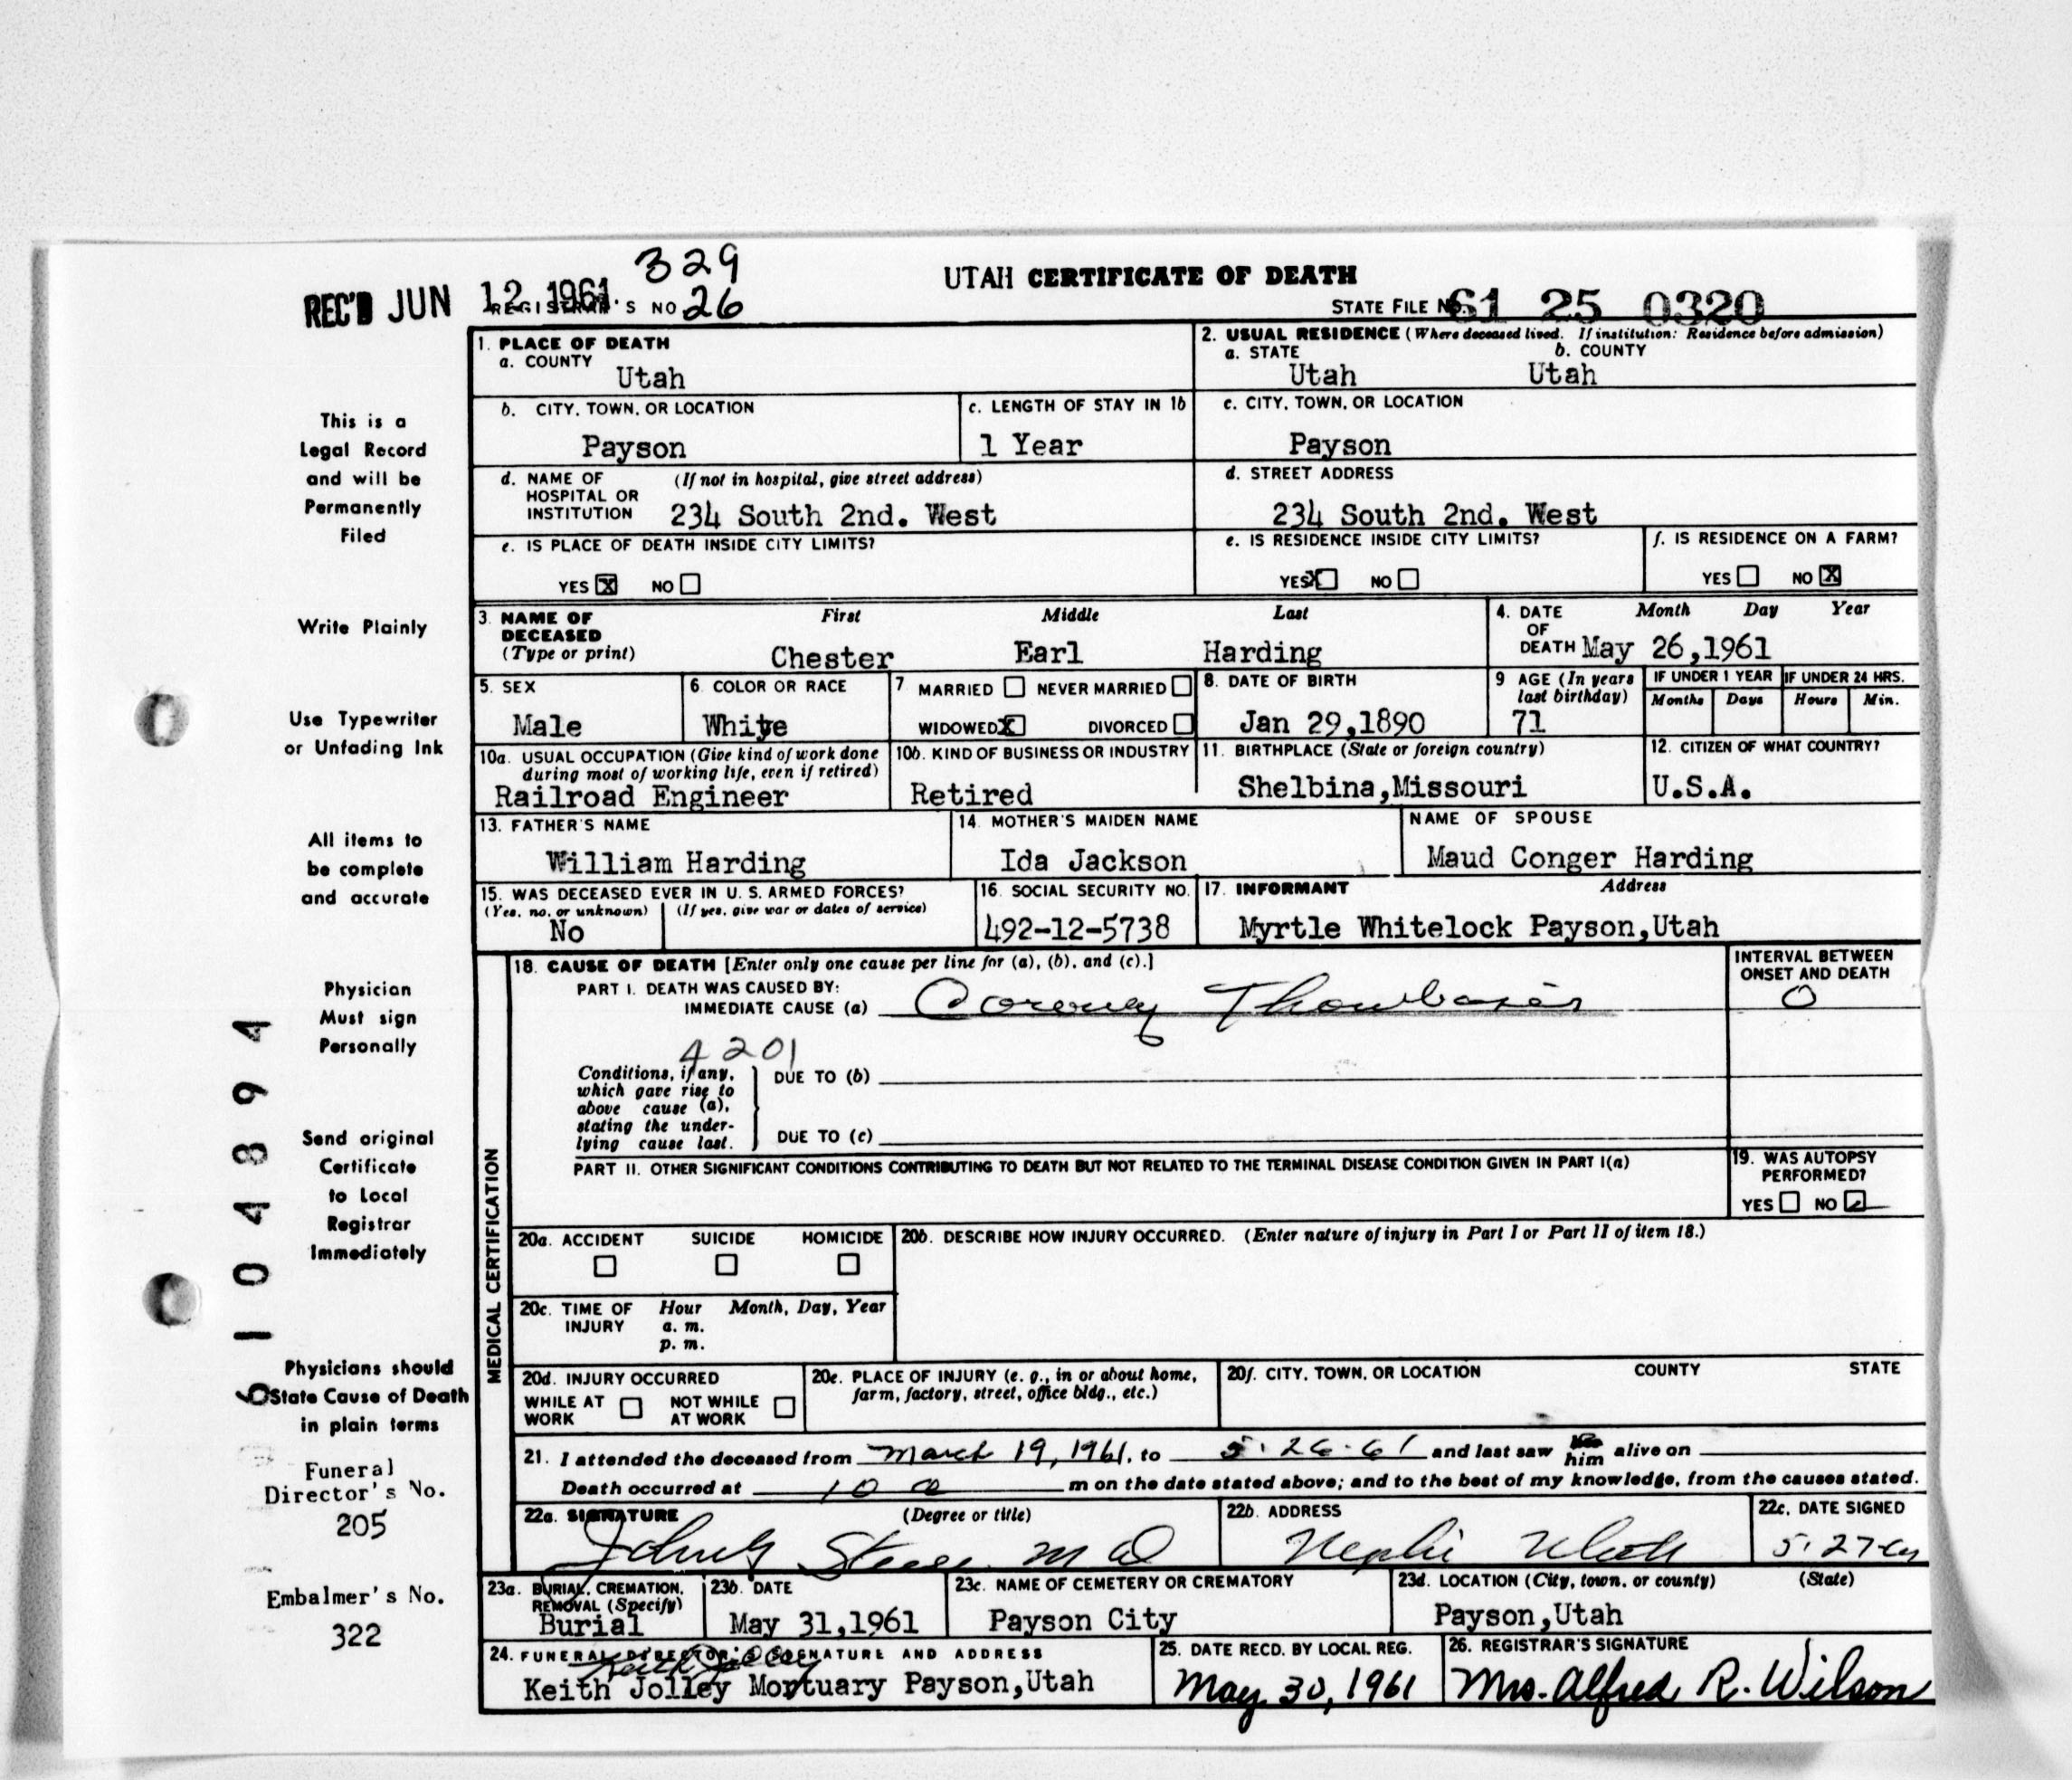 329
REC'D JUN 12 1961
REGISTRAR'S NO 26
UTAH CERTIFICATE OF DEATH
STATE FILE NO. 61 25 0320
1. PLACE OF DEATH
a. COUNTY
Utah
2. USUAL RESIDENCE (Where deceased lived. If institution: Residence before admission)
a. STATE b. COUNTY
Utah Utah
b. CITY, TOWN, OR LOCATION
Payson
c. LENGTH OF STAY IN 1b
1 Year
c. CITY, TOWN, OR LOCATION
Payson
d. NAME OF HOSPITAL OR INSTITUTION (If not in hospital, give street address)
234 South 2nd. West
d. STREET ADDRESS
234 South 2nd. West
e. IS PLACE OF DEATH INSIDE CITY LIMITS?
YES X NO
e. IS RESIDENCE INSIDE CITY LIMITS?
YES X NO
f. IS RESIDENCE ON A FARM?
YES NO X
3. NAME OF DECEASED (Type or print)
First Middle Last
Chester Earl Harding
4. DATE OF DEATH Month Day Year
May 26,1961
5. SEX
Male
6. COLOR OR RACE
White
7 MARRIED NEVER MARRIED
WIDOWED X DIVORCED
8. DATE OF BIRTH
Jan 29,1890
9 AGE (In years last birthday)
71
IF UNDER 1 YEAR
Months Days
IF UNDER 24 HRS.
Hours Min.
10a. USUAL OCCUPATION (Give kind of work done during most of working life, even if retired)
Railroad Engineer
10b. KIND OF BUSINESS OR INDUSTRY
Retired
11. BIRTHPLACE (State or foreign country)
Shelbina,Missouri
12. CITIZEN OF WHAT COUNTRY?
U.S.A.
13. FATHER'S NAME
William Harding
14. MOTHER'S MAIDEN NAME
Ida Jackson
NAME OF SPOUSE
Maud Conger Harding
15. WAS DECEASED EVER IN U. S. ARMED FORCES?
(Yes, no, or unknown) (If yes, give war or dates of service)
No
16. SOCIAL SECURITY NO.
492-12-5738
17. INFORMANT Address
Myrtle Whitelock Payson,Utah
MEDICAL CERTIFICATION
18. CAUSE OF DEATH [Enter only one cause per line for (a), (b), and (c).]
PART I. DEATH WAS CAUSED BY:
IMMEDIATE CAUSE (a) Coronary Thrombosis
INTERVAL BETWEEN ONSET AND DEATH
0
4201
Conditions, if any, which gave rise to above cause (a), stating the underlying cause last.
DUE TO (b)
DUE TO (c)
PART II. OTHER SIGNIFICANT CONDITIONS CONTRIBUTING TO DEATH BUT NOT RELATED TO THE TERMINAL DISEASE CONDITION GIVEN IN PART I(a)
19. WAS AUTOPSY PERFORMED?
YES NO
20a. ACCIDENT SUICIDE HOMICIDE
20b. DESCRIBE HOW INJURY OCCURRED. (Enter nature of injury in Part I or Part II of item 18.)
20c. TIME OF INJURY Hour Month, Day, Year
a. m.
p. m.
20d. INJURY OCCURRED
WHILE AT WORK NOT WHILE AT WORK
20e. PLACE OF INJURY (e. g., in or about home, farm, factory, street, office bldg., etc.)
20f. CITY, TOWN, OR LOCATION COUNTY STATE
21. I attended the deceased from March 19, 1961, to 5.26.61 and last saw him alive on
Death occurred at 10 a m on the date stated above; and to the best of my knowledge, from the causes stated.
22a. SIGNATURE (Degree or title)
M D
22b. ADDRESS
Nephi Utah
22c. DATE SIGNED
5.27-61
23a. BURIAL, CREMATION, REMOVAL (Specify)
Burial
23b. DATE
May 31,1961
23c. NAME OF CEMETERY OR CREMATORY
Payson City
23d. LOCATION (City, town, or county) (State)
Payson,Utah
24. FUNERAL DIRECTOR'S SIGNATURE AND ADDRESS
Keith Jolley
Keith Jolley Mortuary Payson,Utah
25. DATE RECD. BY LOCAL REG.
May 30, 1961
26. REGISTRAR'S SIGNATURE
Mrs. Alfred R. Wilson
This is a
Legal Record
and will be
Permanently
Filed
Write Plainly
Use Typewriter
or Unfading Ink
All items to
be complete
and accurate
Physician
Must sign
Personally
Send original
Certificate
to Local
Registrar
Immediately
Physicians should
State Cause of Death
in plain terms
Funeral
Director's No.
205
Embalmer's No.
322
6104894